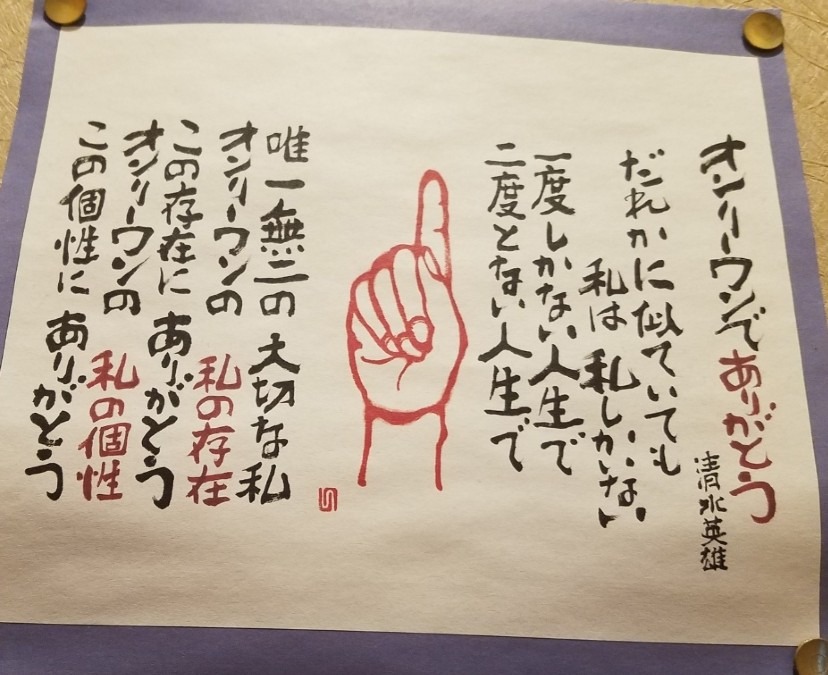 オンリーワンでありがとう
清水英雄
だれかに似ていても
私は私しかいない
一度しかない人生で
二度とない人生で
唯一無二の大切な私
オンリーワンの私の存在
この存在にありがとう
オンリーワンの私の個性
この個性にありがとう